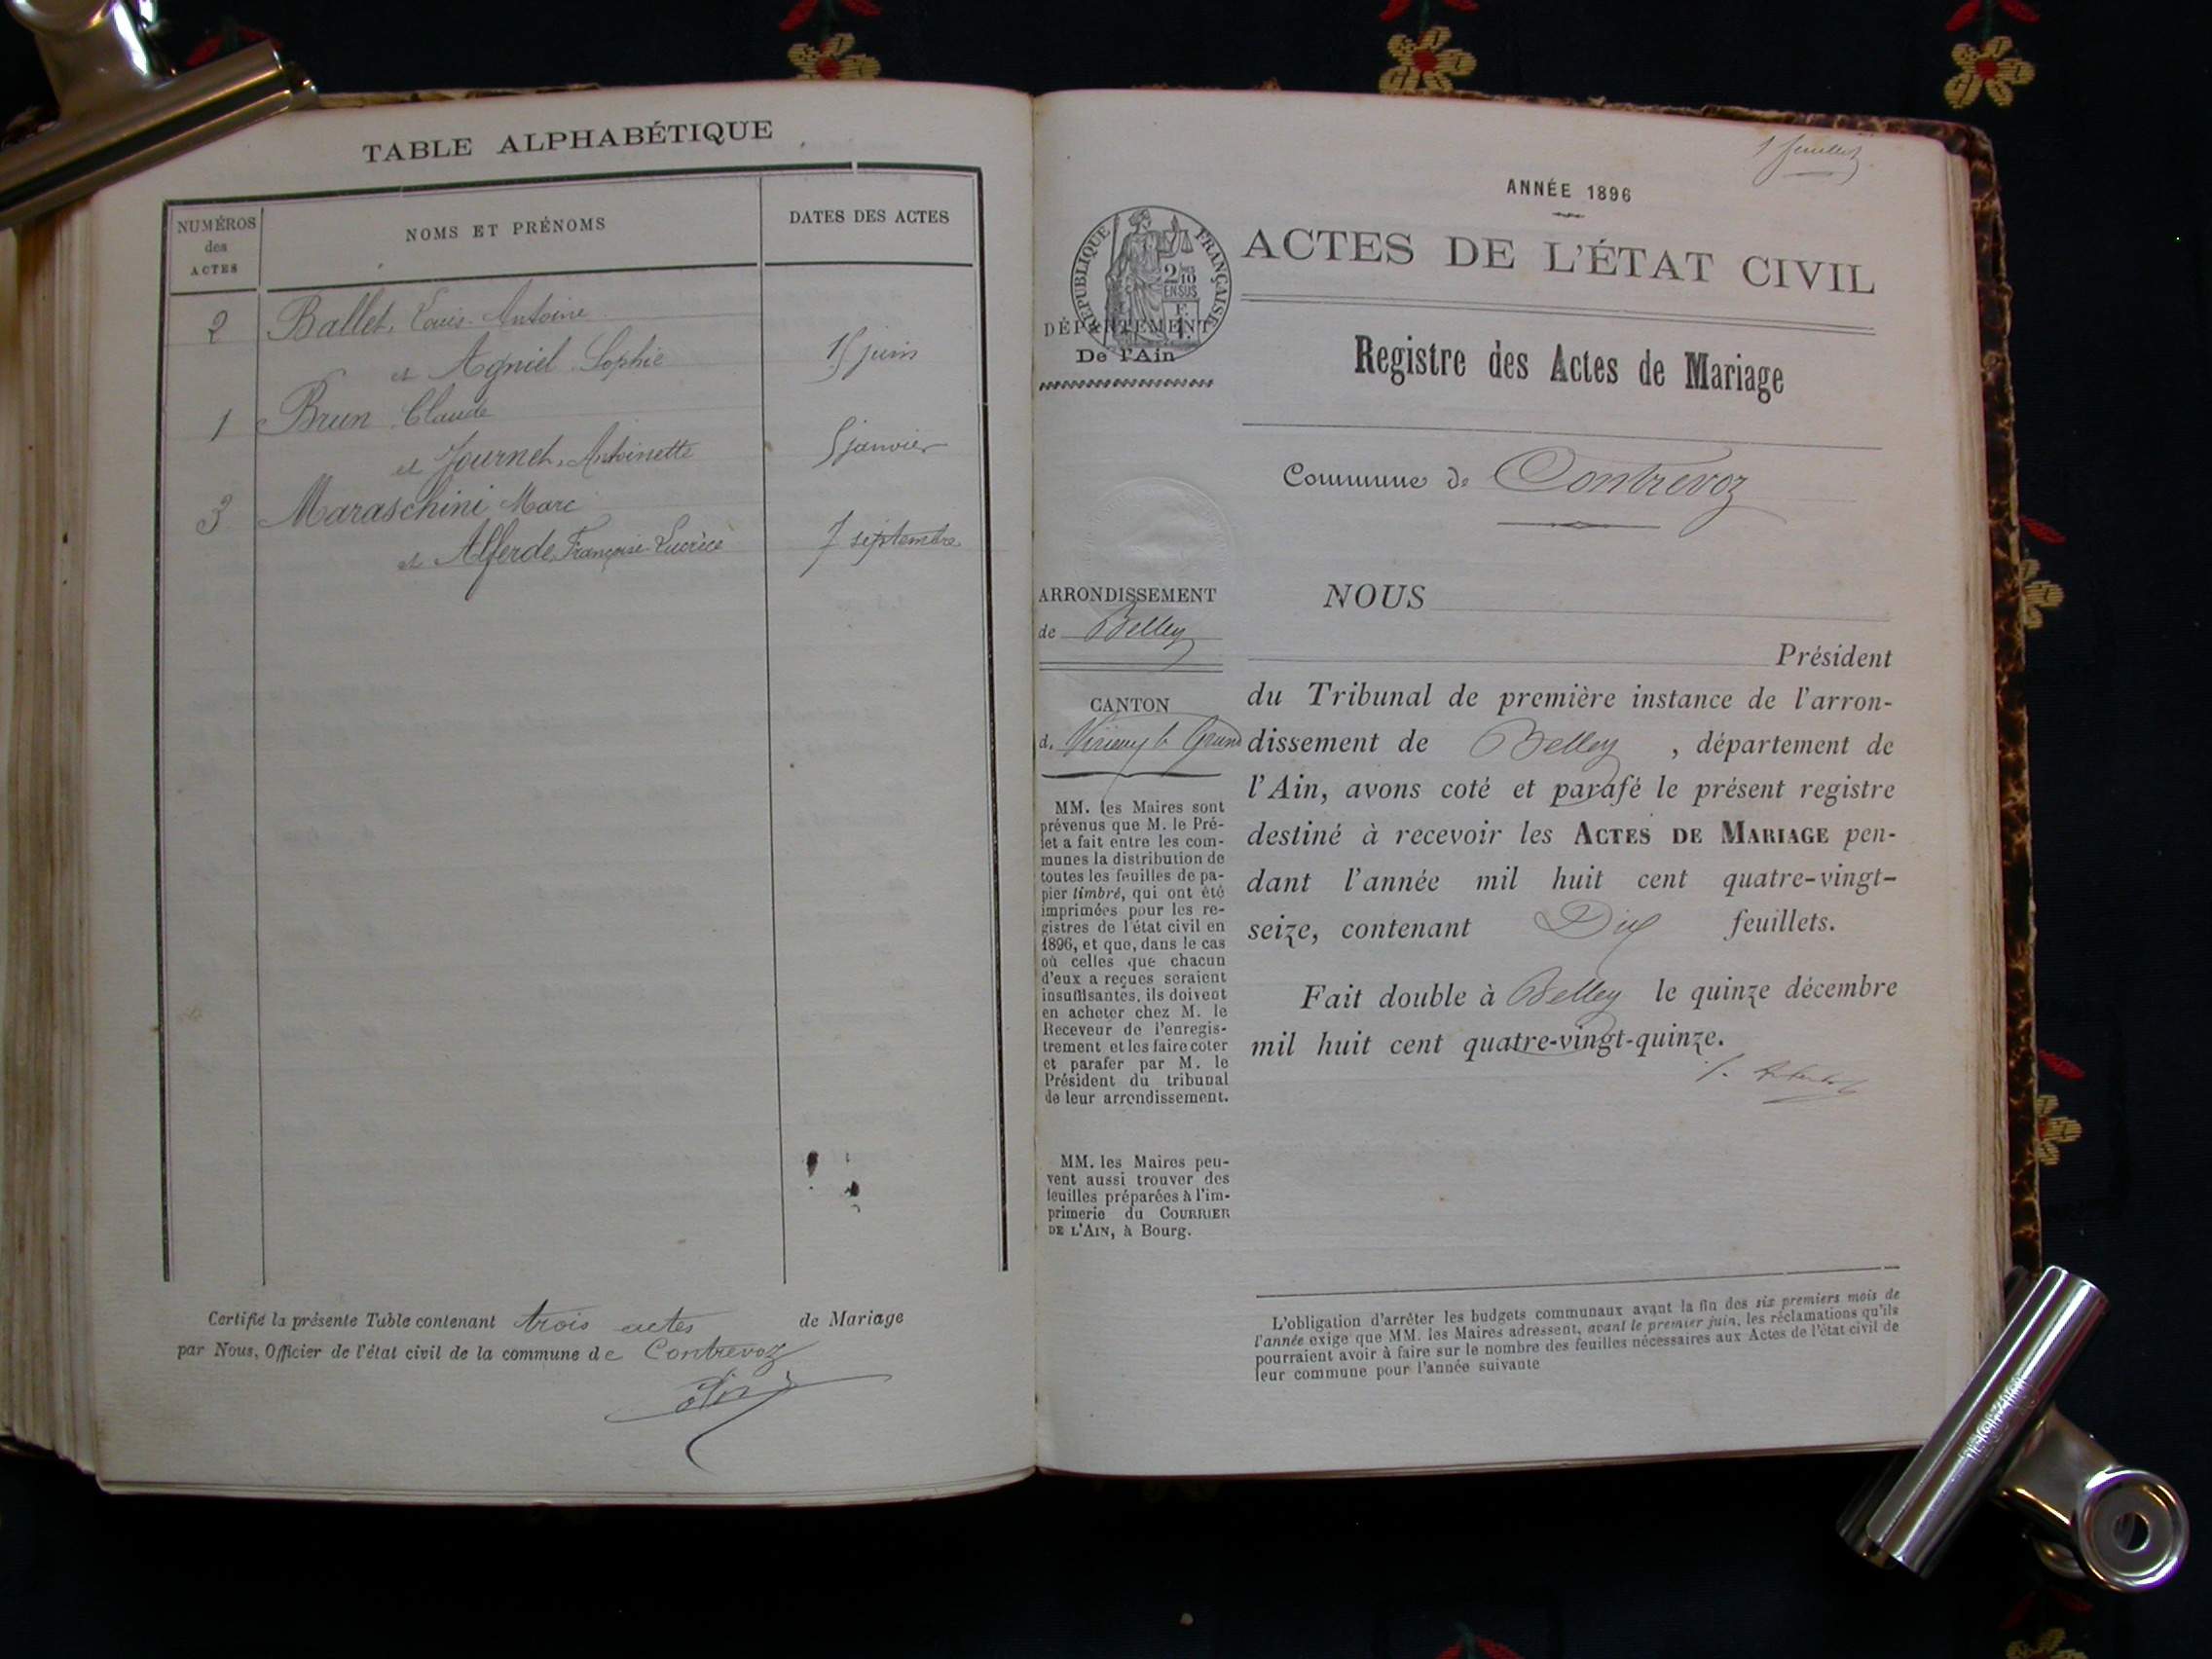 TABLE ALPHABÉTIQUE
NUMÉROS
des
ACTES
NOMS ET PRÉNOMS
DATES DES ACTES
2 Ballet, Louis Antoine
et Agniel Sophie 15 juin
1 Brun Claude
et Journet, Antoinette 5 janvier
3 Maraschini Marc
et Alferde, Françoise Lucrèce 7 septembre
Certifié la présente Table contenant trois actes de Mariage
par Nous, Officier de l'état civil de la commune de Contrevoz
1er feuillet
ANNÉE 1896
RÉPUBLIQUE FRANÇAISE
2/10
EN SUS
ACTES DE L'ÉTAT CIVIL
DÉPARTEMENT
De l'Ain
Registre des Actes de Mariage
Commune de Contrevoz
ARRONDISSEMENT
de Belley
CANTON
d. Virieu le Grand
MM. les Maires sont
prévenus que M. le Pré-
fet a fait entre les com-
munes la distribution de
toutes les feuilles de pa-
pier timbré, qui ont été
imprimées pour les re-
gistres de l'état civil en
1896, et que, dans le cas
où celles que chacun
d'eux a reçues seraient
insuffisantes, ils doivent
en acheter chez M. le
Receveur de l'enregis-
trement et les faire coter
et parafer par M. le
Président du tribunal
de leur arrondissement.
MM. les Maires peu-
vent aussi trouver des
feuilles préparées à l'im-
primerie du COURRIER
DE L'AIN, à Bourg.
NOUS
Président
du Tribunal de première instance de l'arron-
dissement de Belley, département de
l'Ain, avons coté et parafé le présent registre
destiné à recevoir les ACTES DE MARIAGE pen-
dant l'année mil huit cent quatre-vingt-
seize, contenant Dix feuillets.
Fait double à Belley le quinze décembre
mil huit cent quatre-vingt-quinze.
L'obligation d'arrêter les budgets communaux avant la fin des six premiers mois de
l'année exige que MM. les Maires adressent, avant le premier juin, les réclamations qu'ils
pourraient avoir à faire sur le nombre des feuilles nécessaires aux Actes de l'état civil de
leur commune pour l'année suivante